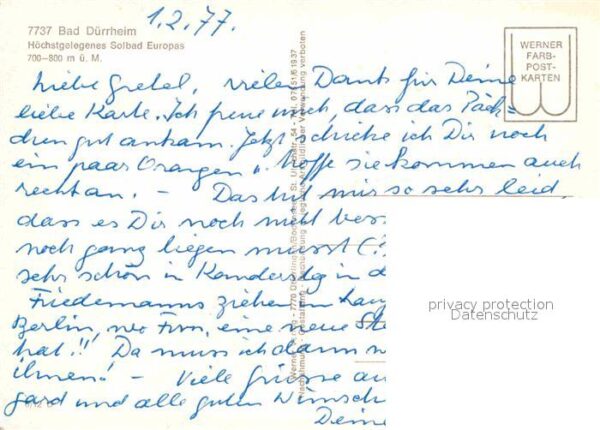 1.2.77.
7737 Bad Dürrheim
Höchstgelegenes Solbad Europas
700–800 m ü. M.
WERNER
FARB-
POST-
KARTEN
Liebe Gretel, vielen Dank für Deine
liebe Karte. Ich freue mich, dass das Päck=
chen gut ankam. Jetzt schicke ich Dir noch
ein paar Orangen u. hoffe sie kommen auch
recht an. – Das tut mir so sehr leid,
dass es Dir noch nicht bes
noch ganz liegen musst (
sehr schön in Kandersteg in d
Friedemanns ziehen im
Berlin, wo eine neue
hat!! Da muss ich dann
ihnen! – Viele Grüsse an
gard und alle guten Wünsch
Deine
privacy protection
Datenschutz